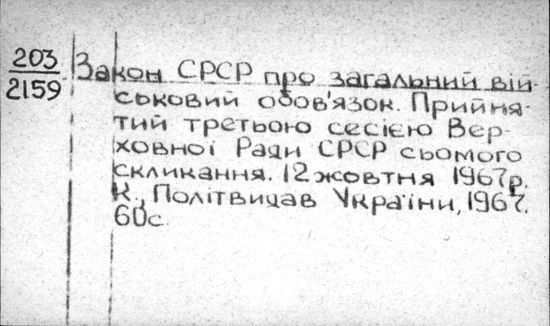 203
2159
Закон СРСР про загальний вій-
ськовий обов'язок. Прийня-
тий третьою сесією Вер-
ховної Ради СРСР сьомого
скликання. 12 жовтня 1967р.
К., Політвидав України, 1967.
60с.